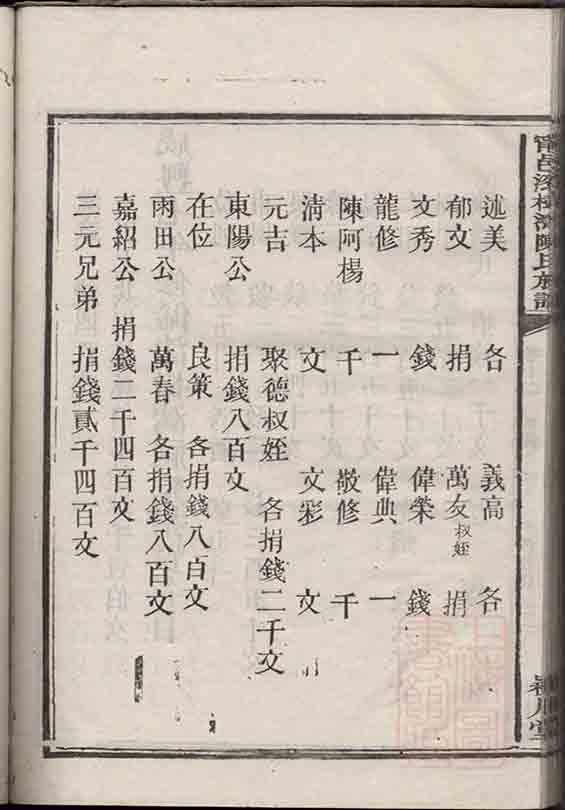 陳氏族譜
潁川堂
述美 各 義高 各
郁文 捐 萬友叔姪 捐
文秀 錢 偉榮 錢
龍修 一 偉典 一
陳阿楊 千 敬修 千
清本 文 文彩 文
元吉 聚德叔姪 各捐錢二千文
東陽公 捐錢八百文
在位 良策 各捐錢八百文
雨田公 萬春 各捐錢八百文
嘉紹公 捐錢二千四百文
三元兄弟 捐錢貳千四百文